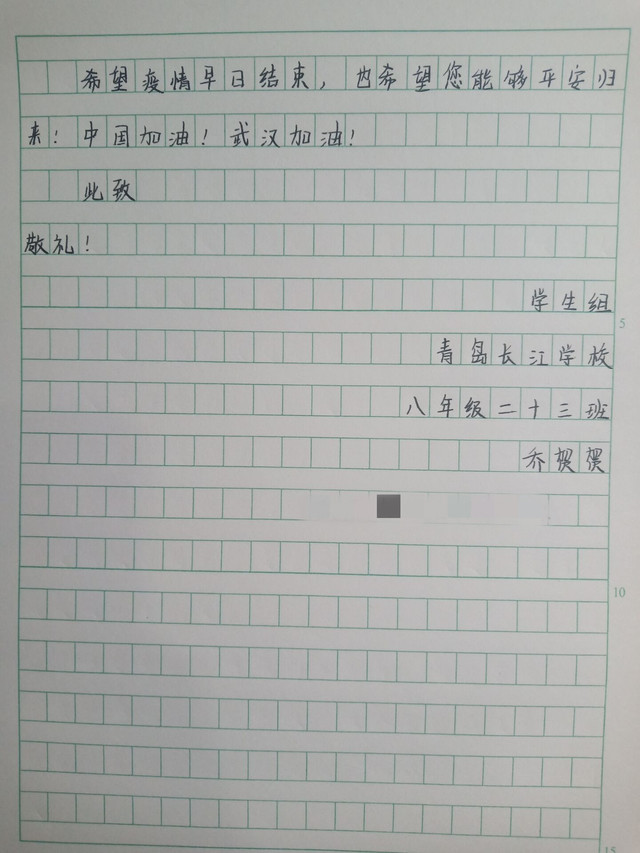 希望疫情早日结束，也希望您能够平安归
来！中国加油！武汉加油！
此致
敬礼！
学生组
5
青岛长江学校
八年级二十三班
乔贺贺
10
15